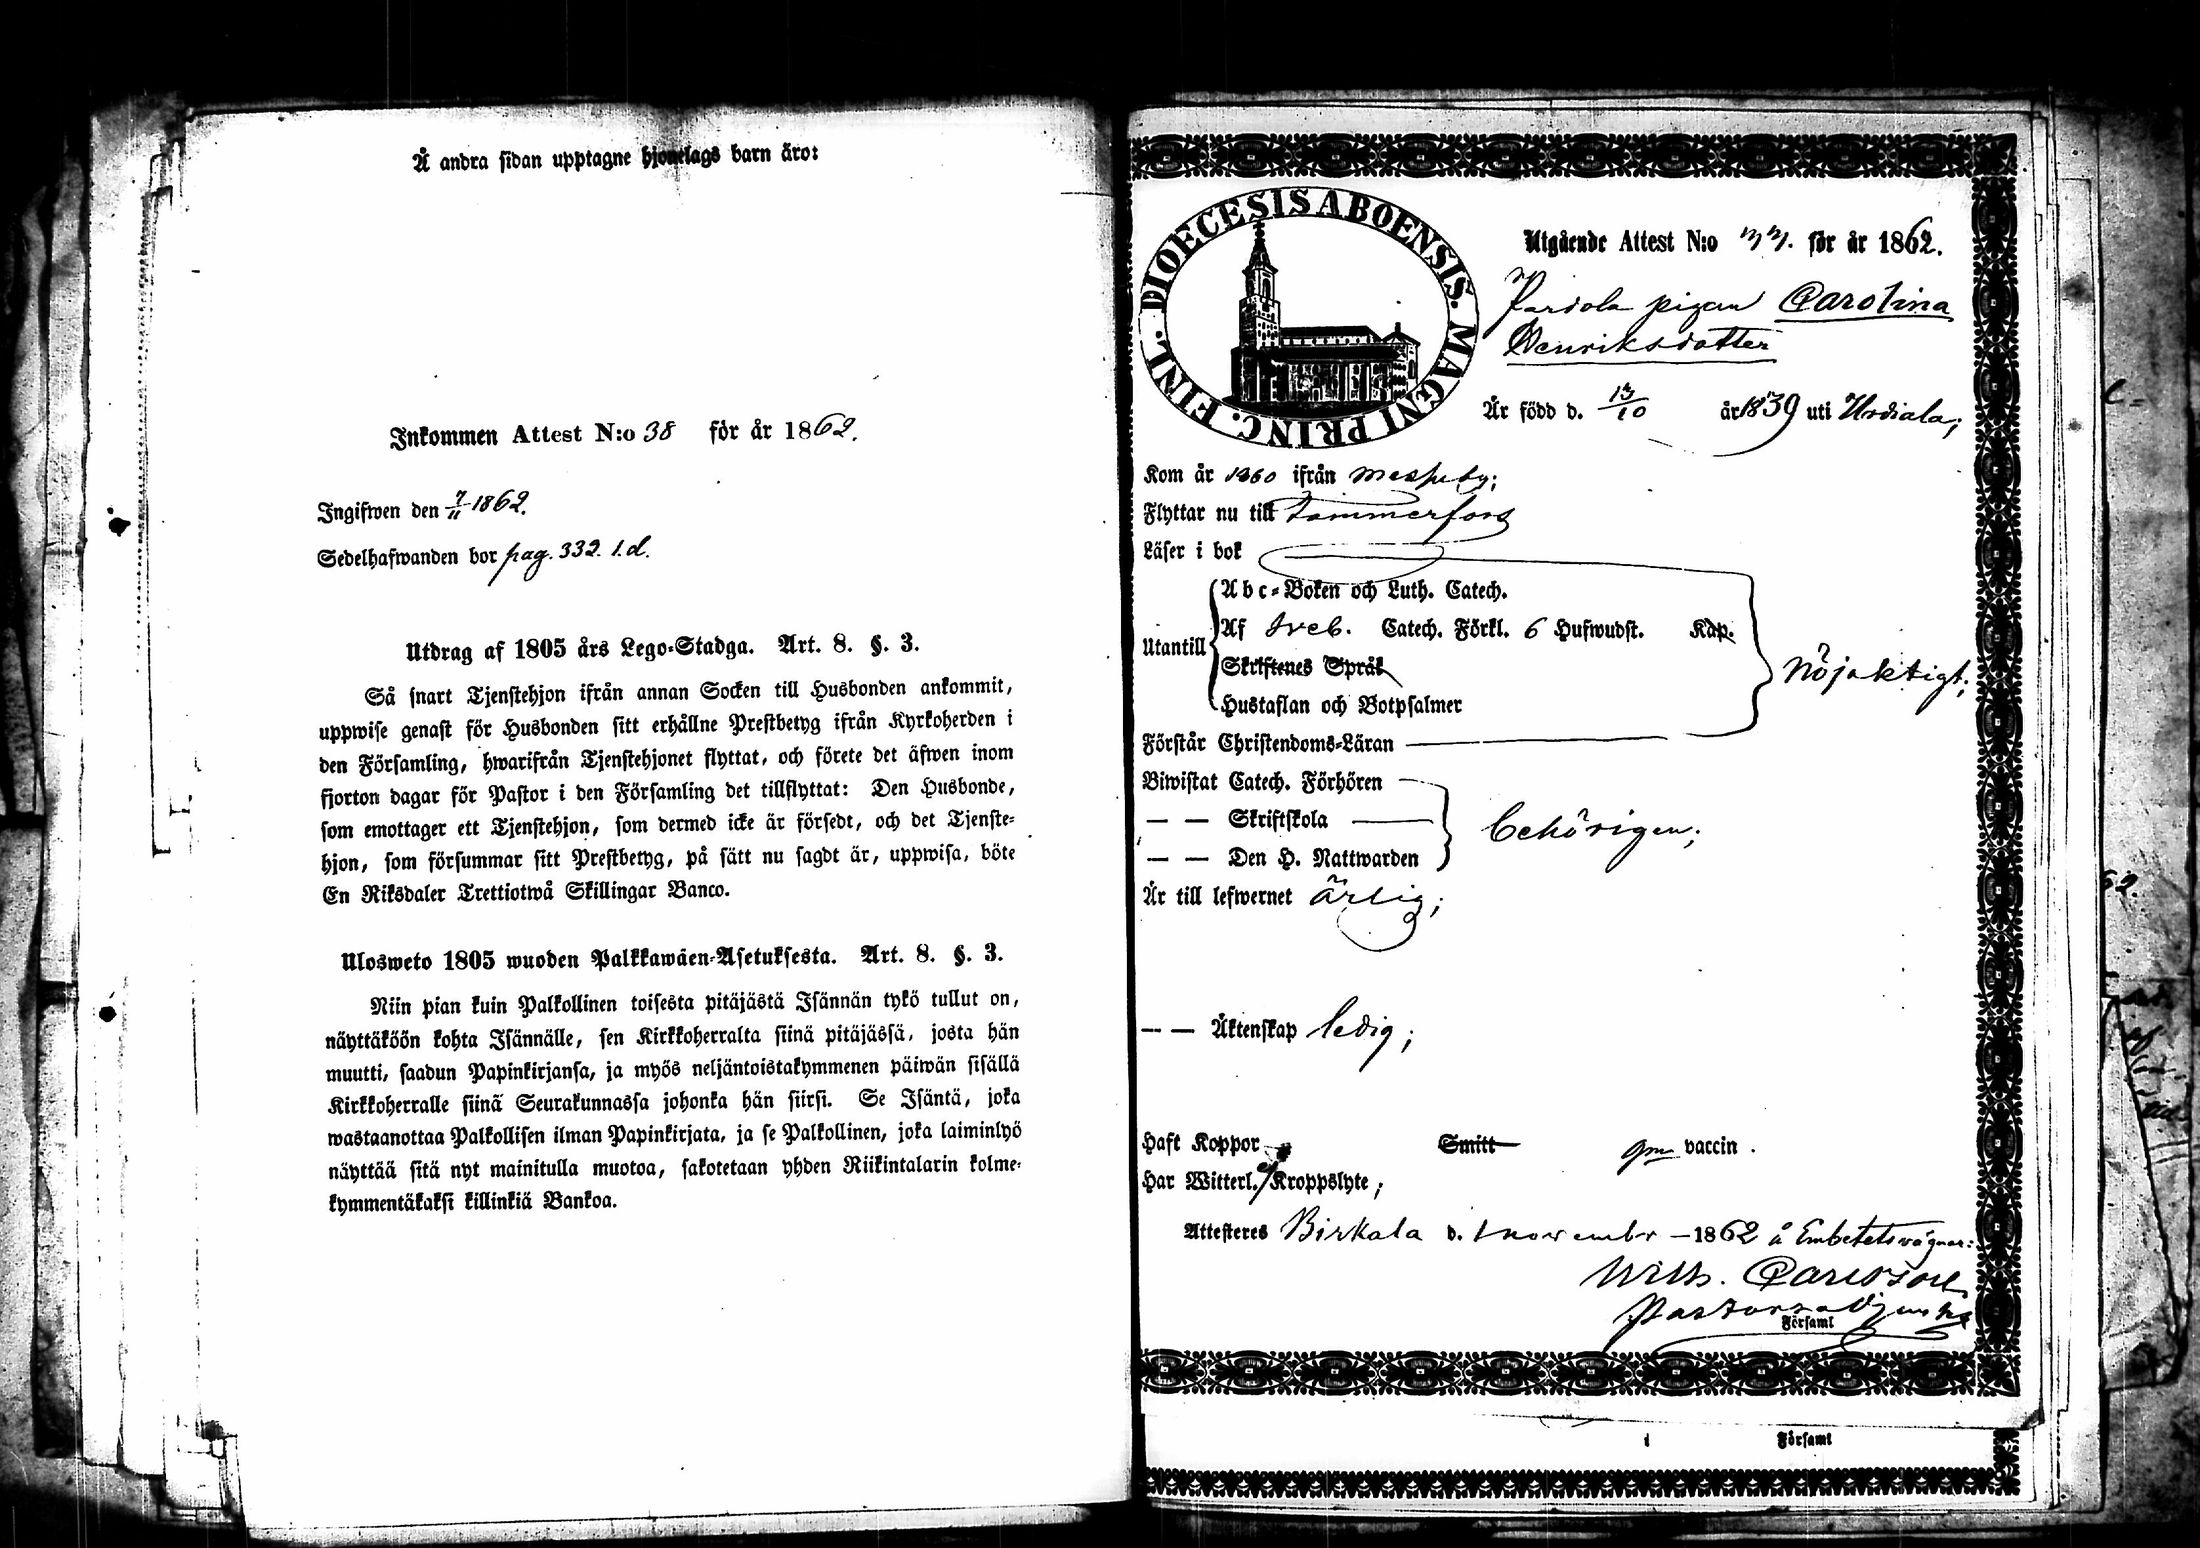 Å andra sidan upptagne hjonelags barn äro:
Inkommen Attest N:o 38 för år 1862.
Ingifwen den 7/11 1862.
Sedelhafwanden bor pag. 332. 1.d.
Utdrag af 1805 års Lego-Stadga. Art. 8. §. 3.
Så snart Tjenstehjon ifrån annan Socken till Husbonden ankommit,
uppwise genast för Husbonden sitt erhållne Prestbetyg ifrån Kyrkoherden i
den Församling, hwarifrån Tjenstehjonet flyttat, och förete det äfwen inom
fjorton dagar för Pastor i den Församling det tillflyttat: Den Husbonde,
som emottager ett Tjenstehjon, som dermed icke är försedt, och det Tjenste-
hjon, som försummar sitt Prestbetyg, på sätt nu sagdt är, uppwisa, böte
En Riksdaler Trettiotwå Skillingar Banco.
Ulosweto 1805 wuoden Palkkawäen-Asetuksesta. Art. 8. §. 3.
Niin pian kuin Palkollinen toisesta pitäjästä Isännän tykö tullut on,
näyttäköön kohta Isännälle, sen Kirkkoherralta siinä pitäjässä, josta hän
muutti, saadun Papinkirjansa, ja myös neljäntoistakymmenen päiwän sisällä
Kirkkoherralle siinä Seurakunnassa johonka hän siirsi. Se Isäntä, joka
wastaanottaa Palkollisen ilman Papinkirjata, ja se Palkollinen, joka laiminlyö
näyttää sitä nyt mainitulla muotoa, sakotetaan yhden Riikintalarin kolme-
kymmentäkaksi killinkiä Bankoa.
DIOECESIS ABOENSIS. MAGNI PRINC. FINL.
Utgående Attest N:o 33. för år 1862.
pigan Carolina
Henriksdotter
Är född d. 13/10 år 1839 uti Urdiala;
Kom år 1860 ifrån Messuby;
Flyttar nu till Tammerfors
Läser i bok
Abc-Boken och Luth. Catech.
Utantill Af Sveb. Catech. Förkl. 6 Hufwudst. Kap.
Skriftenes Språk
Hustaflan och Botpsalmer
Nöjaktigt;
Förstår Christendoms-Läran
Biwistat Catech. Förhören
— — Skriftskola
— — Den H. Nattwarden
behörigen;
Är till lefwernet ärlig;
— — Äktenskap ledig;
Haft Koppor Smitt gm vaccin.
Har Witterl. Kroppslyte;
Attesteres Birkala d. 1 novembr 1862 å Embetets vägnar:
Wilh. Carlsson
Församl
i Församl